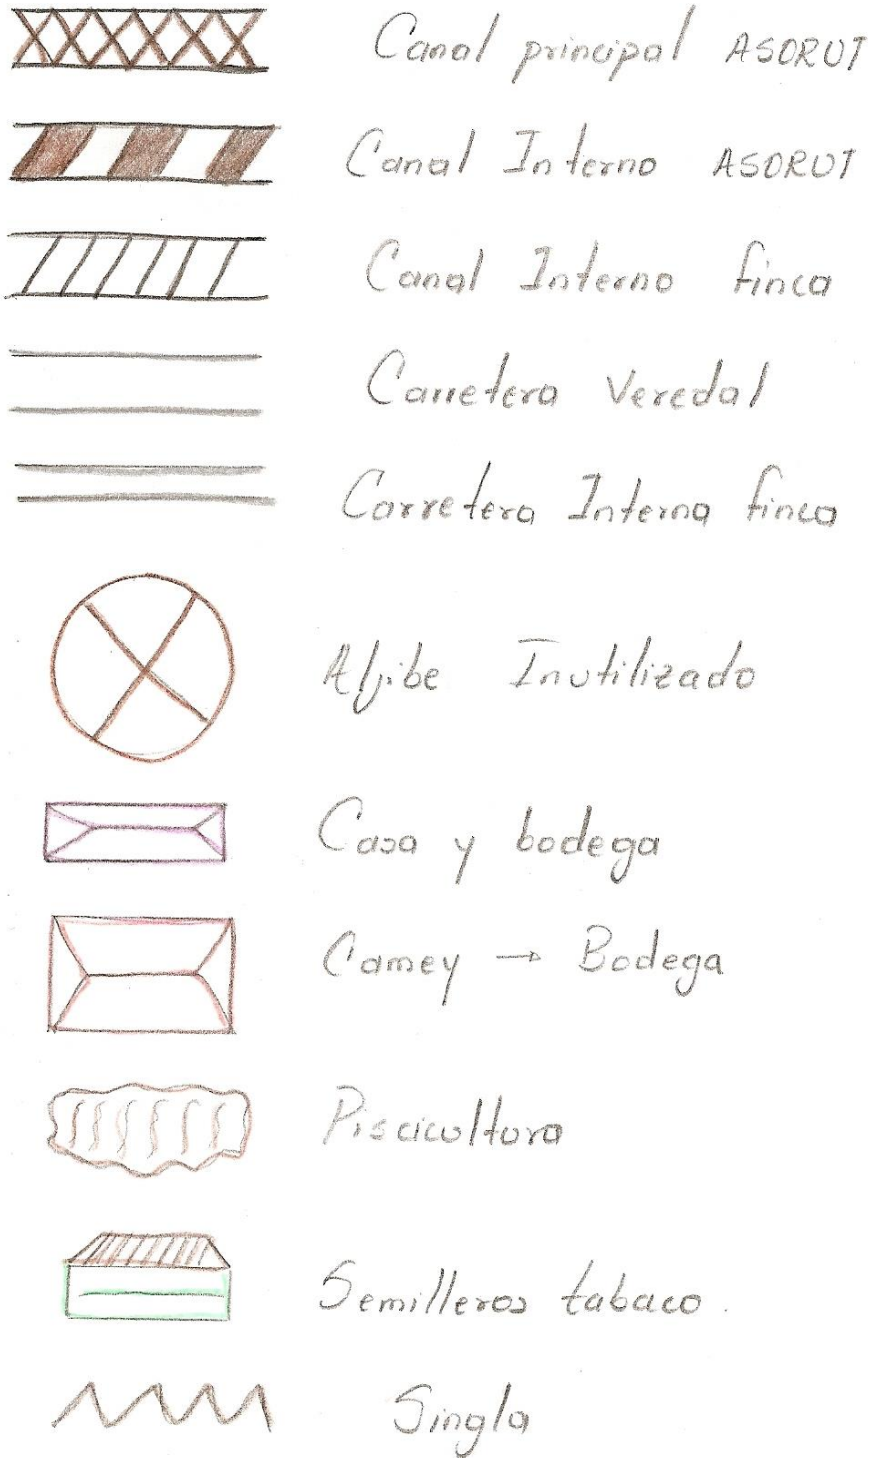 Canal principal ASORUT
Canal Interno ASORUT
Canal Interno finca
Carretera Veredal
Carretera Interna finca
Aljibe Inutilizado
Casa y bodega
Camey → Bodega
Piscicultura
Semilleros tabaco.
Singla